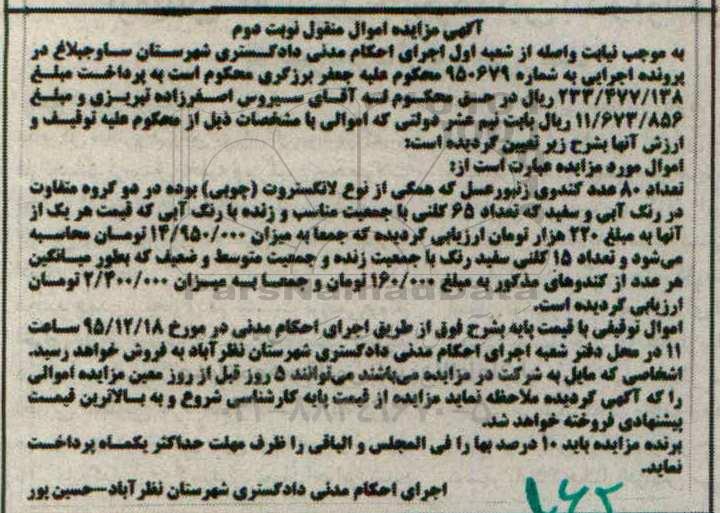 آگهی مزایده اموال منقول نوبت دوم
به موجب نیابت واصله از شعبه اول اجرای احکام مدنی دادگستری شهرستان ساوجبلاغ در
پرونده اجرایی به شماره ۹۵۰۶۷۹ محکوم علیه جعفر برزگری محکوم است به پرداخت مبلغ
۲۳۳/۴۷۷/۱۳۸ ریال در حق محکوم له آقای سیروس اصغرزاده تبریزی و مبلغ
۱۱/۶۷۳/۸۵۶ ریال بابت نیم عشر دولتی که اموالی با مشخصات ذیل از محکوم علیه توقیف و
ارزش آنها بشرح زیر تعیین گردیده است:
اموال مورد مزایده عبارت است از:
تعداد ۸۰ عدد کندوی زنبورعسل که همگی از نوع لانگستروت (چوبی) بوده در دو گروه متفاوت
در رنگ آبی و سفید که تعداد ۶۵ کلنی با جمعیت مناسب و زنده با رنگ آبی که قیمت هر یک از
آنها به مبلغ ۲۳۰ هزار تومان ارزیابی گردیده که جمعا به میزان ۱۴/۹۵۰/۰۰۰ تومان محاسبه
می‌شود و تعداد ۱۵ کلنی سفید رنگ با جمعیت زنده و جمعیت متوسط و ضعیف که بطور میانگین
هر عدد از کندوهای مذکور به مبلغ ۱۶۰/۰۰۰ تومان و جمعا به میزان ۲/۴۰۰/۰۰۰ تومان
ارزیابی گردیده است.
اموال توقیفی با قیمت پایه بشرح فوق از طریق اجرای احکام مدنی در مورخ ۹۵/۱۲/۱۸ ساعت
۱۱ در محل دفتر شعبه اجرای احکام مدنی دادگستری شهرستان نظرآباد به فروش خواهد رسید.
اشخاصی که مایل به شرکت در مزایده می‌باشند می‌توانند ۵ روز قبل از روز معین مزایده اموالی
را که آگهی گردیده ملاحظه نماید مزایده از قیمت پایه کارشناسی شروع و به بالاترین قیمت
پیشنهادی فروخته خواهد شد.
برنده مزایده باید ۱۰ درصد بها را فی المجلس و الباقی را ظرف مهلت حداکثر یکماه پرداخت
نماید.
اجرای احکام مدنی دادگستری شهرستان نظرآباد-حسین پور
ParsNamadData